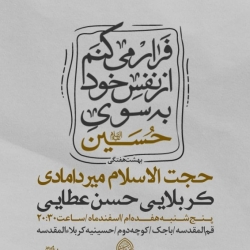 فرار می‌کنم
از نفس خود
به سوی
حسین
بهشت هفتگی
حجت الاسلام میردامادی
کربلایی حسن عطایی
پنج شنبه هفدهم/اسفندماه/ساعت ۲۰:۳۰
قم المقدسه/باجک/کوچه دوم/حسینیه کربلاءالمقدسه